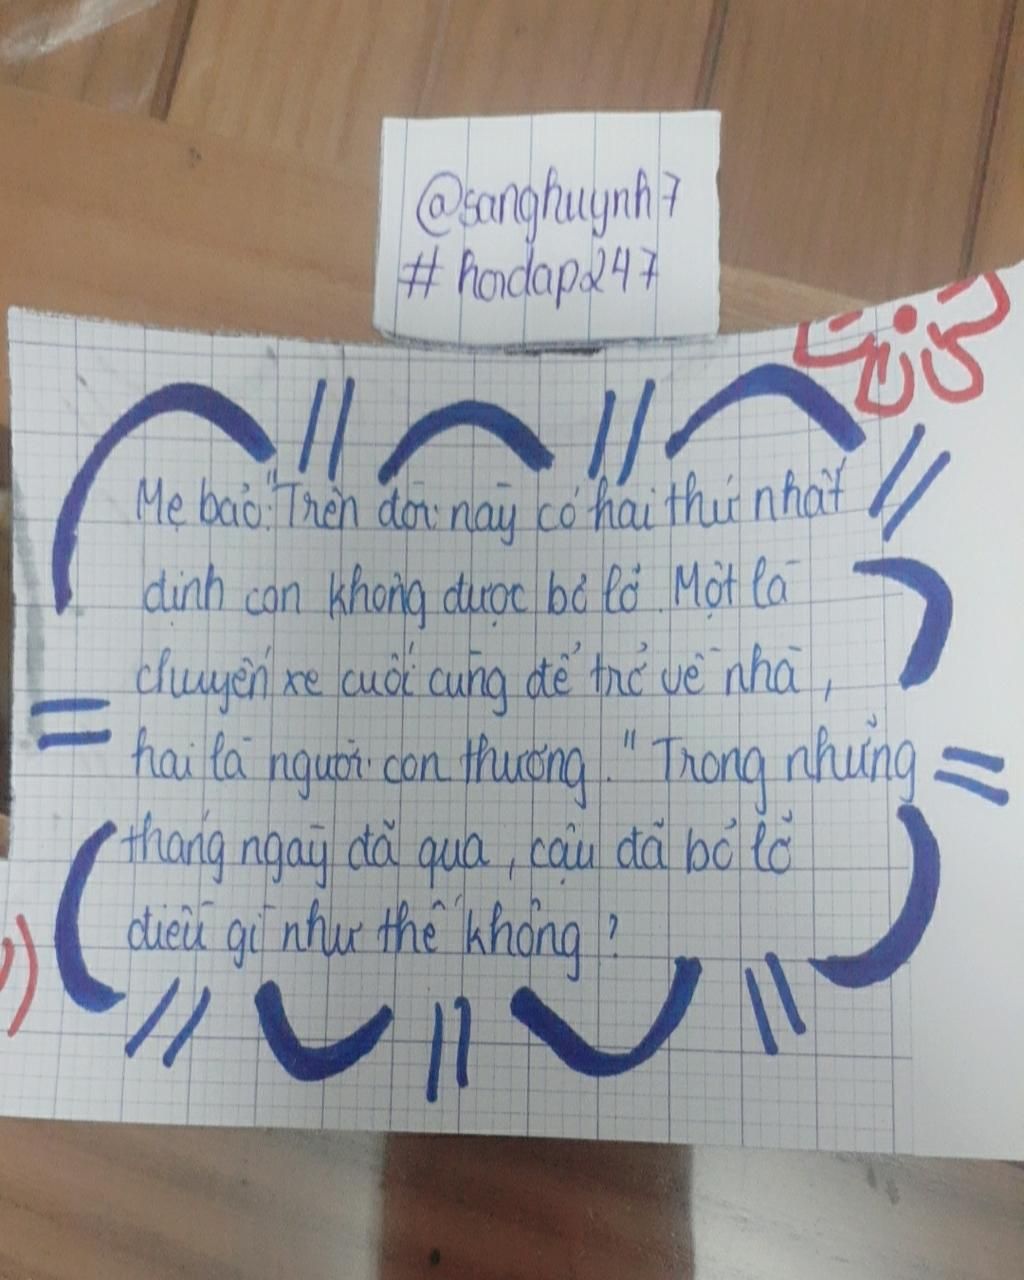 @sanghuynh7
#hoidap247
Mẹ bảo: "Trên đời này có hai thứ nhất
định con không được bỏ lỡ. Một là
chuyến xe cuối cùng để trở về nhà,
hai là người con thương." Trong những
tháng ngày đã qua, cậu đã bỏ lỡ
điều gì như thế không?